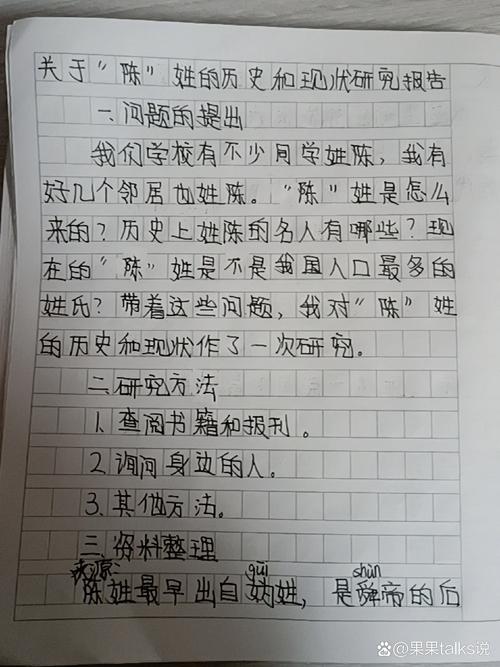 关于“陈”姓的历史和现状研究报告
一、问题的提出
我们学校有不少同学姓陈，我有
好几个邻居也姓陈。“陈”姓是怎么
来的？历史上姓陈的名人有哪些？现
在的“陈”姓是不是我国人口最多的
姓氏？带着这些问题，我对“陈”姓
的历史和现状作了一次研究。
二、研究方法
1、查阅书籍和报刊。
2、询问身边的人。
3、其他方法。
三、资料整理
来源: guī shùn
陈姓最早出自妫姓，是舜帝的后
果果talks说